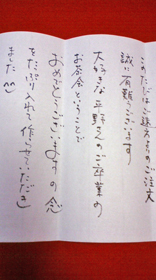 このたびはご遠方よりのご注文
誠に有難うございます
大好きな平野さんのご卒業の
お茶会ということで
おめでとうございますの念
をたっぷり入れて作らせていただき
ました